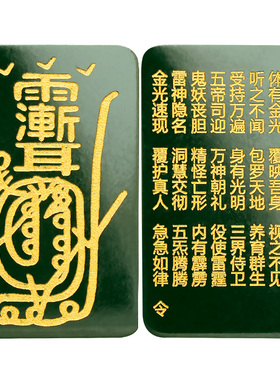 雨
漸
耳
体有金光 覆映吾身 视之不见
听之不闻 包罗天地 养育群生
受持万遍 身有光明 三界侍卫
五帝司迎 万神朝礼 役使雷霆
鬼妖丧胆 精怪亡形 内有霹雳
雷神隐名 洞慧交彻 五炁腾腾
金光速现 覆护真人 急急如律
令